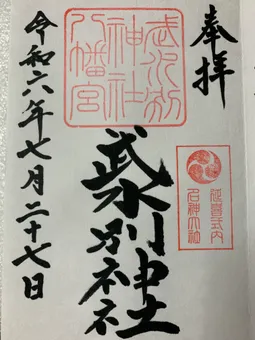 奉拝
武水別
神社
八幡宮
延喜式内
名神大社
武水別神社
令和六年七月二十七日